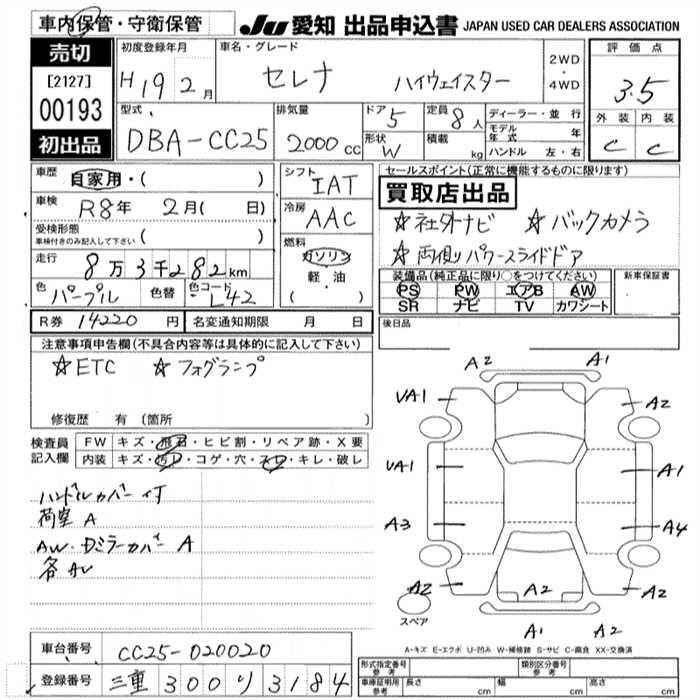 車内保管・守衛保管
JU 愛知 出品申込書 JAPAN USED CAR DEALERS ASSOCIATION
売切
[2127]
00193
初出品
初度登録年月
H 19 2月
車名・グレード
セレナ ハイウェイスター
2WD
・
4WD
評価点
3.5
外装 内装
C C
型式
DBA-CC25
排気量
2000 CC
ドア 5
形状 W
定員 8人
積載 kg
ディーラー・並行
モデル年式 年
ハンドル 左・右
車歴 自家用・( )
車検 R8年 2月( 日)
受検形態
車検付きのみ記入して下さい ( )
走行 8万3千282km
色 パープル 色替 色コード L42
R券 14220円 名変通知期限 月 日
シフト IAT
冷房 AAC
燃料
ガソリン
軽・油
( )
セールスポイント(正常に機能するものに限ります)
買取店出品
☆社外ナビ ☆バックカメラ
☆両側パワースライドドア
装備品(純正品に限り○をつけてください)
PS PW エアB AW
SR ナビ TV カワシート
新車保証書
後日品
注意事項申告欄(不具合内容等は具体的に記入して下さい)
☆ETC ☆フォグランプ
修復歴 有 (箇所 )
検査員記入欄
FW キズ・飛石・ヒビ割・リペア跡・X要
内装 キズ・汚レ・コゲ・穴・スレ・キレ・破レ
ハンドルカバー付
荷室 A
AW・Dミラーカバー A
各AU
A2 A1
VA1 A2
VA1 A1
A3 A4
A2 A2 A2
A1 A2
スペア
A-キズ E-エクボ U-凹み W-補修跡 S-サビ C-腐食 XX-交換済
車台番号 CC25-020020
登録番号 三重 300 り 3184
形式指定番号 参考 類別区分番号 参考
車庫証明用 参考 長さ cm 幅 cm 高さ cm